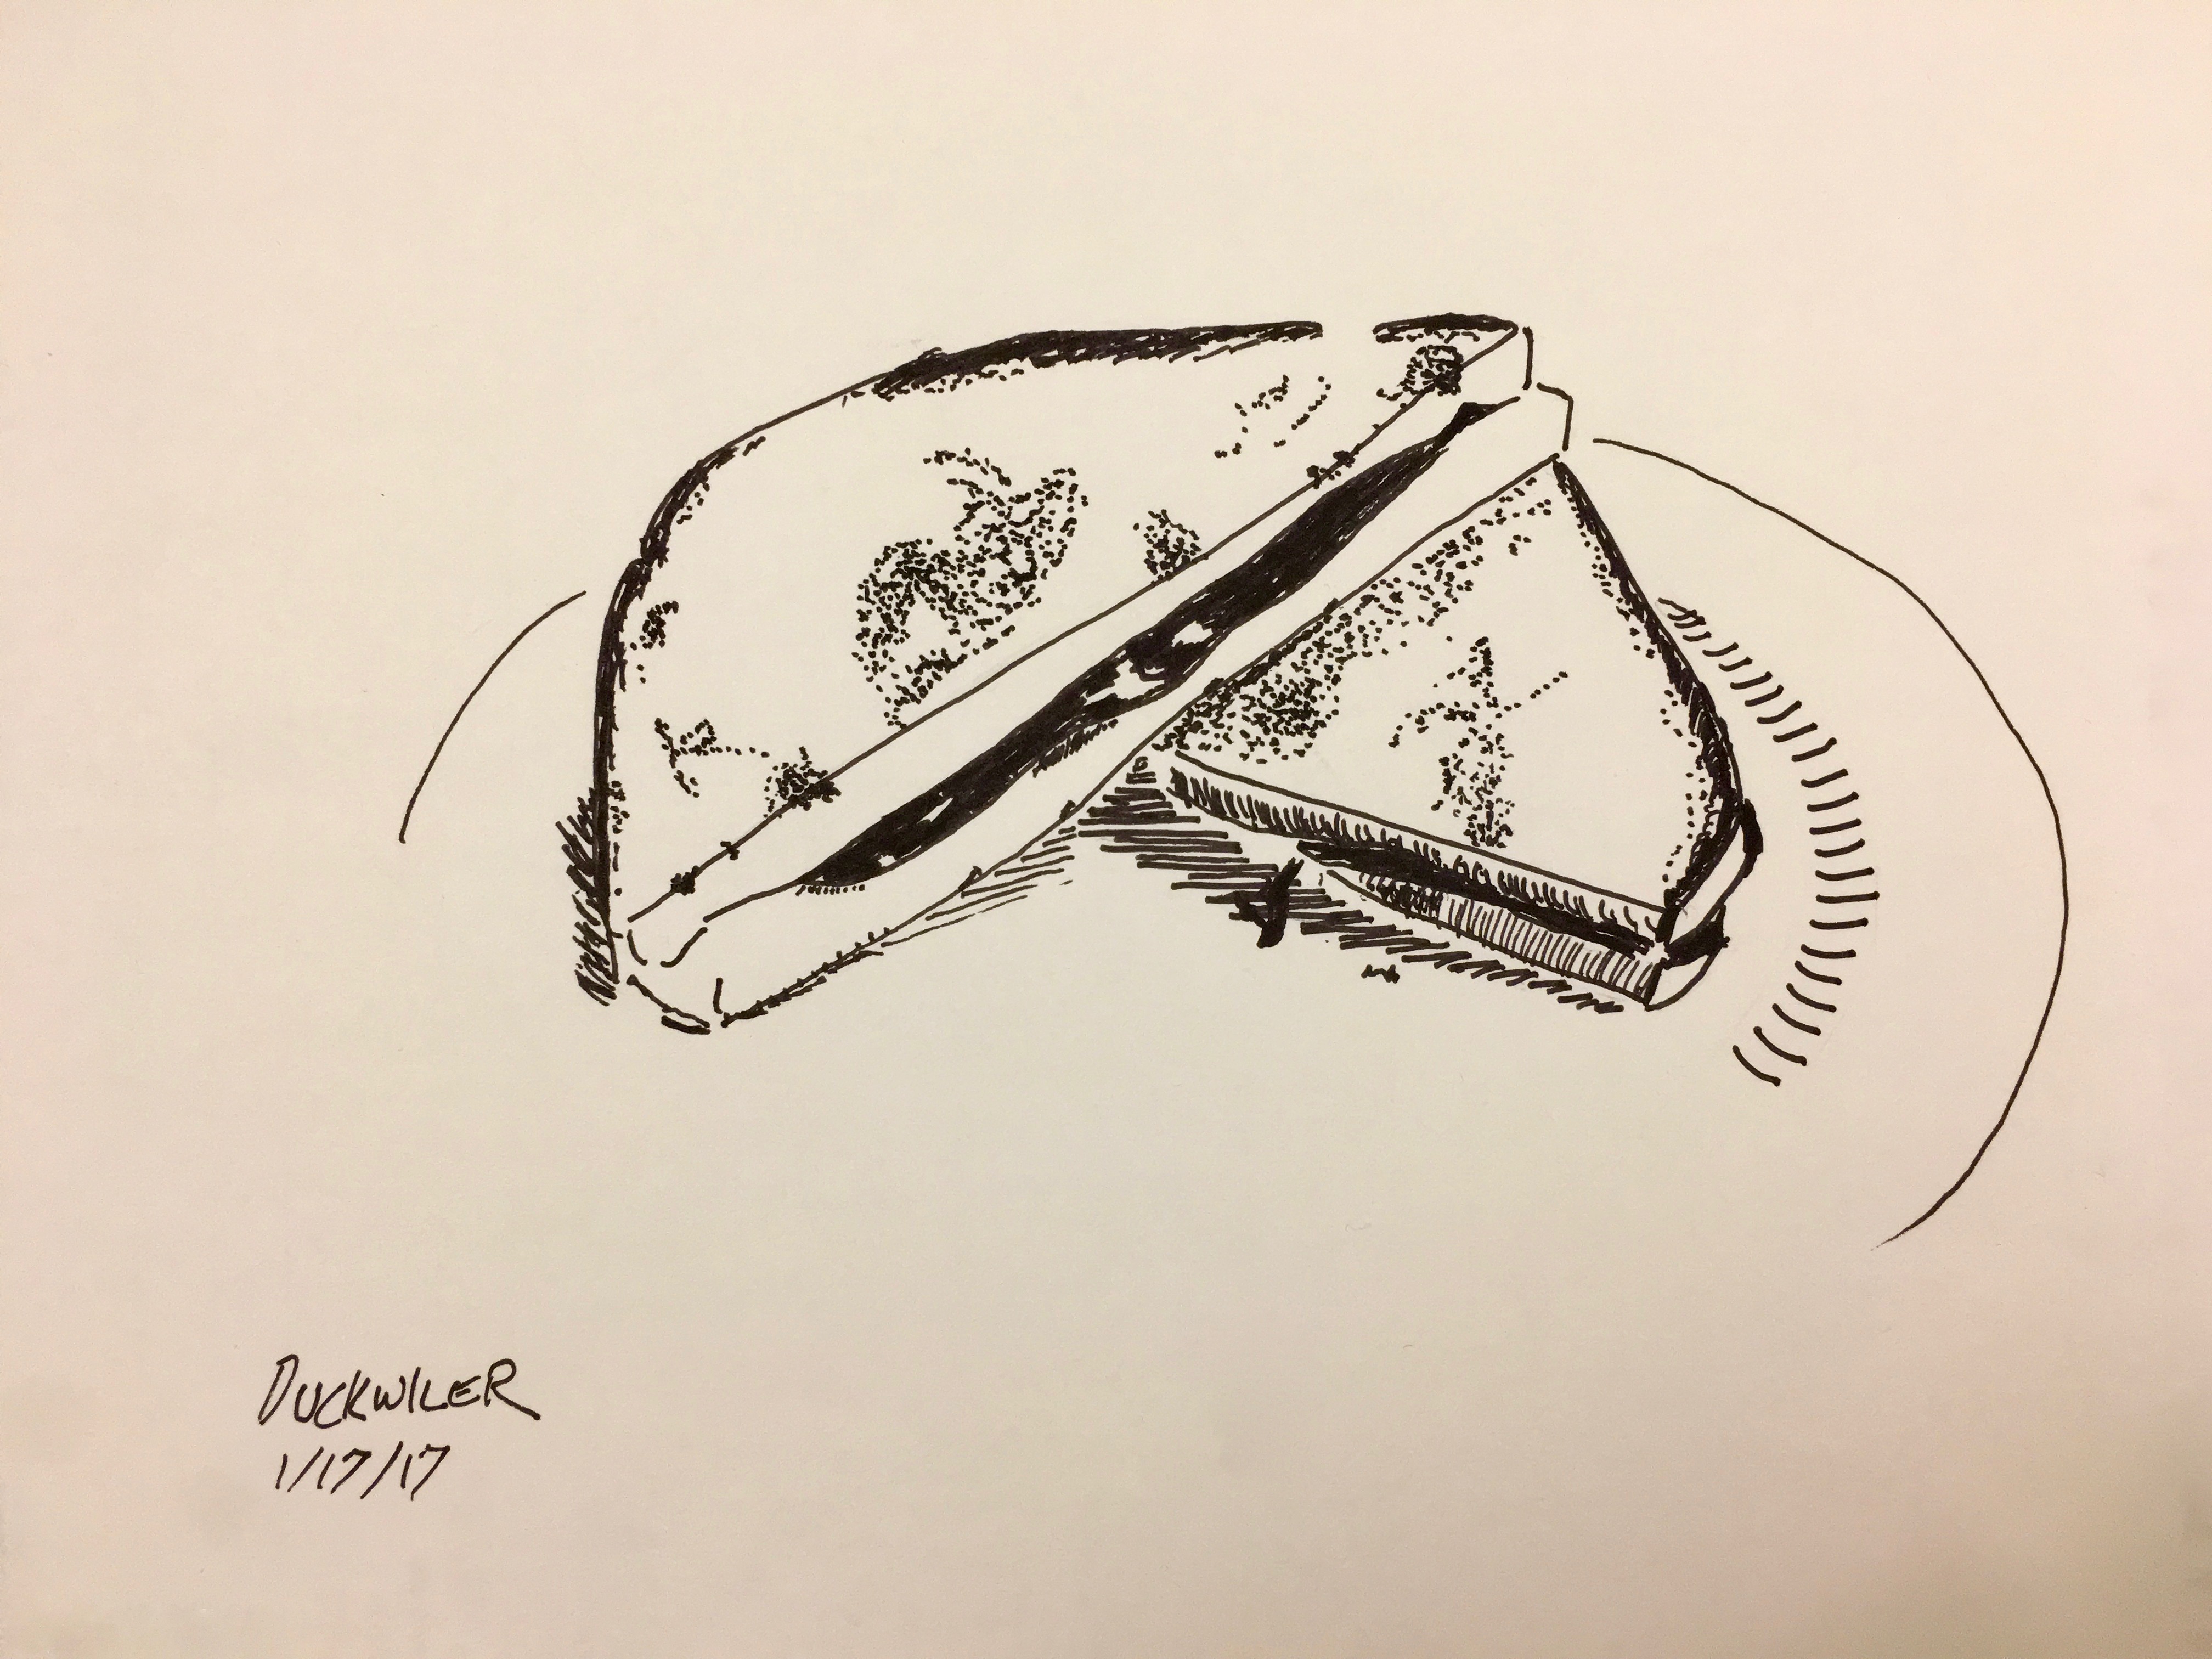 DUCKWILER
1/17/17